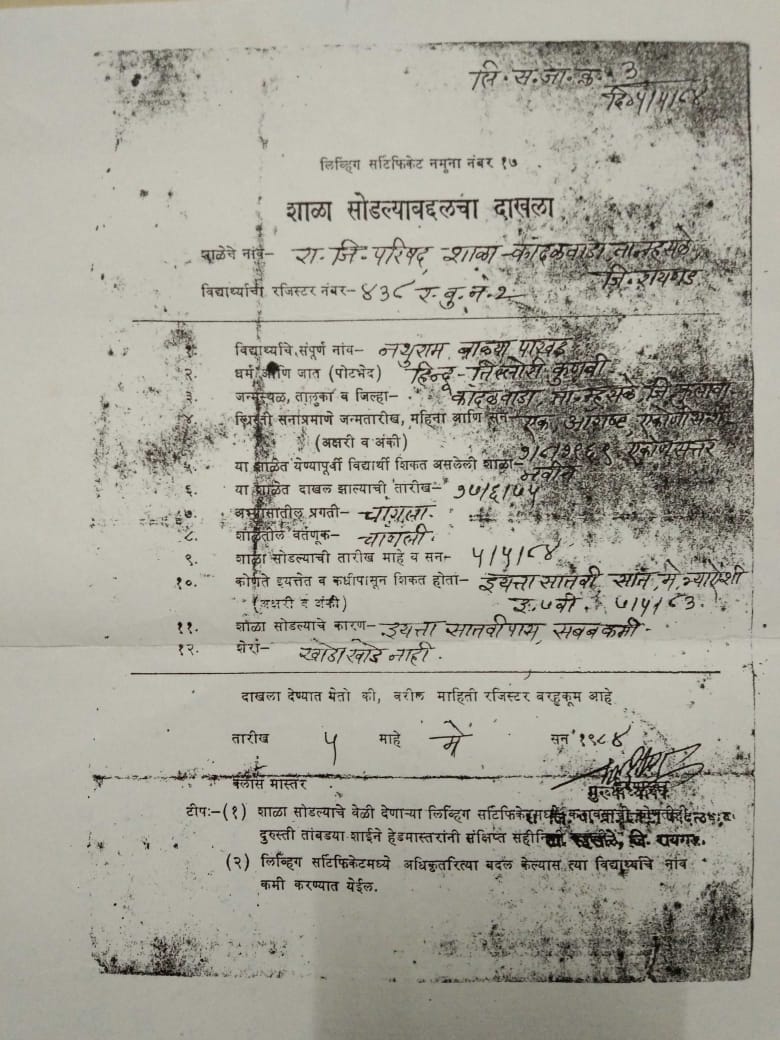 लि. स. जा. क्र. ३
दि. ५/५/८४
लिव्हिग सर्टिफिकेट नमूना नंबर १७
शाळा सोडल्याबद्दलचा दाखला
शाळेचे नांव- रा. जि. परिषद, शाळा-कांदळवाडा ता.म्हसळे
जि. रायगड
विद्यार्थ्याची रजिस्टर नंबर- ४३८ र. बु. नं. २
१. विद्यार्थ्याचे संपूर्ण नांव- नथुराम बाळ्या
२. धर्म आणि जात (पोटभेद) हिन्दू - तिल्लोरी कुणबी
३. जन्मस्थळ, तालुका व जिल्हा- कांदळवाडा ता. म्हसळे जि. कुलाबा
४. ख्रिस्ती सनाप्रमाणे जन्मतारीख, महिना आणि सन- एक ऑगष्ट एकोणीसशे
(अक्षरी व अंकी) १/८/१९६९ एकोणसत्तर
५. या शाळेत येण्यापूर्वी विद्यार्थी शिकत असलेली शाळा- नवीन
६. या शाळेत दाखल झाल्याची तारीख- १७/६/७५
७. अभ्यासातील प्रगती- चांगली.
८. शाळेतील वर्तणूक- चांगली.
९. शाळा सोडल्याची तारीख माहे व सन- ५/५/८४
१०. कोणते इयत्तेत व कधीपासून शिकत होता- इयत्ता सातवी, सात, मे, त्र्याऐंशी
(अक्षरी व अंकी) इ. ७ वी. ७/५/८३.
११. शाळा सोडल्याचे कारण- इयत्ता सातवी पास, सबब कमी.
१२. शेरा- खाडाखोड नाही.
दाखला देण्यात येतो की, वरील माहिती रजिस्टर बरहुकूम आहे
तारीख ५ माहे मे सन १९८४
क्लास मास्तर मुख्याध्यापक
टीप:-(१) शाळा सोडल्याचे वेळी देणाऱ्या लिव्हिग सर्टिफिकेट
दुरुस्ती तांबडया शाईने हेडमास्तरांनी संक्षिप्त ता. म्हसळे, जि. रायगड.
(२) लिव्हिग सर्टिफिकेटमध्ये अधिकृतरित्या बदल केल्यास त्या विद्यार्थ्याचे नांव
कमी करण्यात येईल.